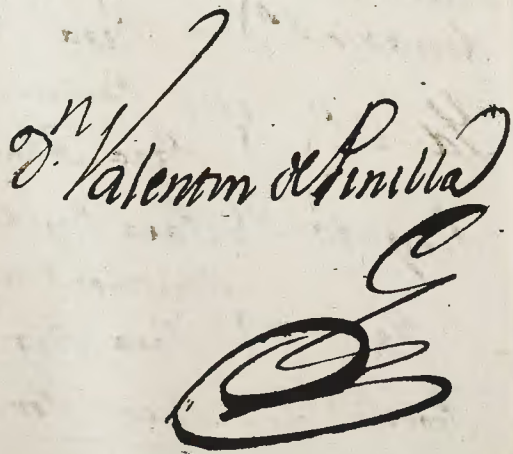 Dn. Valentin de Pinilla